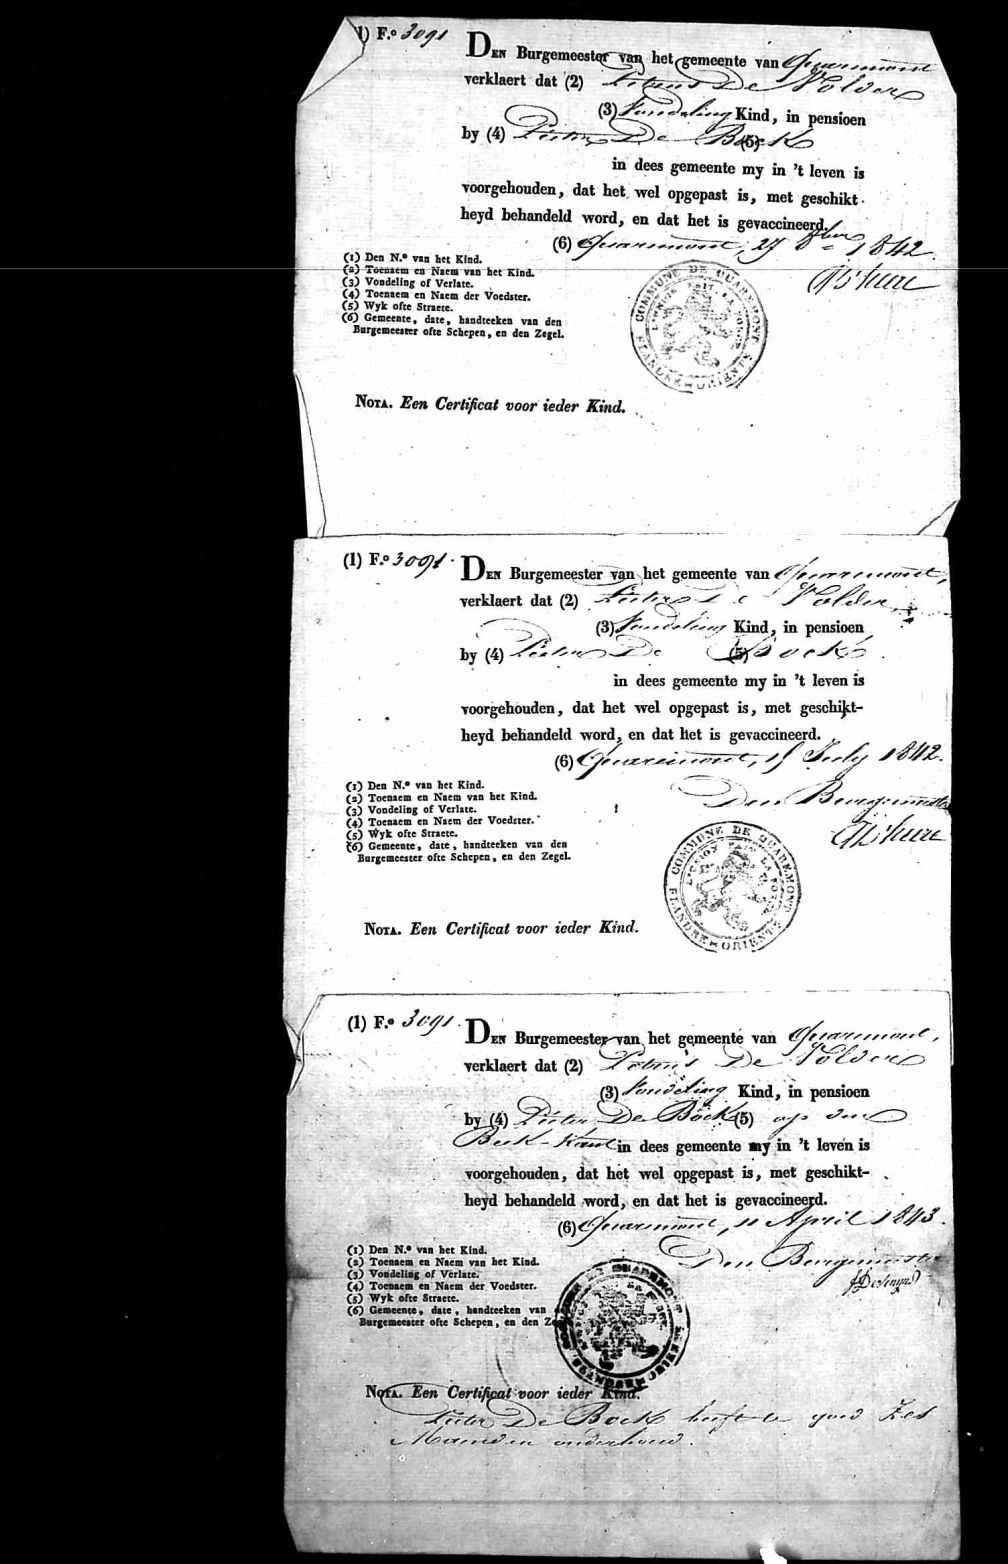 1) F.º 3091
DEN Burgemeester van het gemeente van Quaremont
verklaert dat (2) De Volder
(3) Vondeling Kind, in pensioen
by (4) Pieter De Bock (5)
in dees gemeente my in 't leven is
voorgehouden, dat het wel opgepast is, met geschikt-
heyd behandeld word, en dat het is gevaccineerd.
(6) Quaremont, 27 8ber 1842.
(1) Den N.º van het Kind.
(2) Toenaem en Naem van het Kind.
(3) Vondeling of Verlate.
(4) Toenaem en Naem der Voedster.
(5) Wyk ofte Straete.
(6) Gemeente, date, handteeken van den
Burgemeester ofte Schepen, en den Zegel.
COMMUNE DE QUAREMONT
FLANDRE ORIENTALE
NOTA. Een Certificat voor ieder Kind.
(1) F.º 3091.
DEN Burgemeester van het gemeente van Quaremont,
verklaert dat (2) De Volder
(3) Vondeling Kind, in pensioen
by (4) Pieter De Bock (5)
in dees gemeente my in 't leven is
voorgehouden, dat het wel opgepast is, met geschikt-
heyd behandeld word, en dat het is gevaccineerd.
(6) Quaremont, July 1842.
Den Burgemeester
(1) Den N.º van het Kind.
(2) Toenaem en Naem van het Kind.
(3) Vondeling of Verlate.
(4) Toenaem en Naem der Voedster.
(5) Wyk ofte Straete.
(6) Gemeente, date, handteeken van den
Burgemeester ofte Schepen, en den Zegel.
COMMUNE DE QUAREMONT
L'UNION FAIT LA FORCE
FLANDRE ORIENTALE
NOTA. Een Certificat voor ieder Kind.
(1) F.º 3091.
DEN Burgemeester van het gemeente van Quaremont,
verklaert dat (2) De Volder
(3) Vondeling Kind, in pensioen
by (4) Pieter De Bock (5) op den
Beek-Kant in dees gemeente my in 't leven is
voorgehouden, dat het wel opgepast is, met geschikt-
heyd behandeld word, en dat het is gevaccineerd.
(6) Quaremont, 11 April 1843.
Den Burgemeester
(1) Den N.º van het Kind.
(2) Toenaem en Naem van het Kind.
(3) Vondeling of Verlate.
(4) Toenaem en Naem der Voedster.
(5) Wyk ofte Straete.
(6) Gemeente, date, handteeken van
Burgemeester ofte Schepen, en den
NOTA. Een Certificat voor ieder Kind.
Pieter De Bock heeft te goed Zes
Maenden onderhoud.